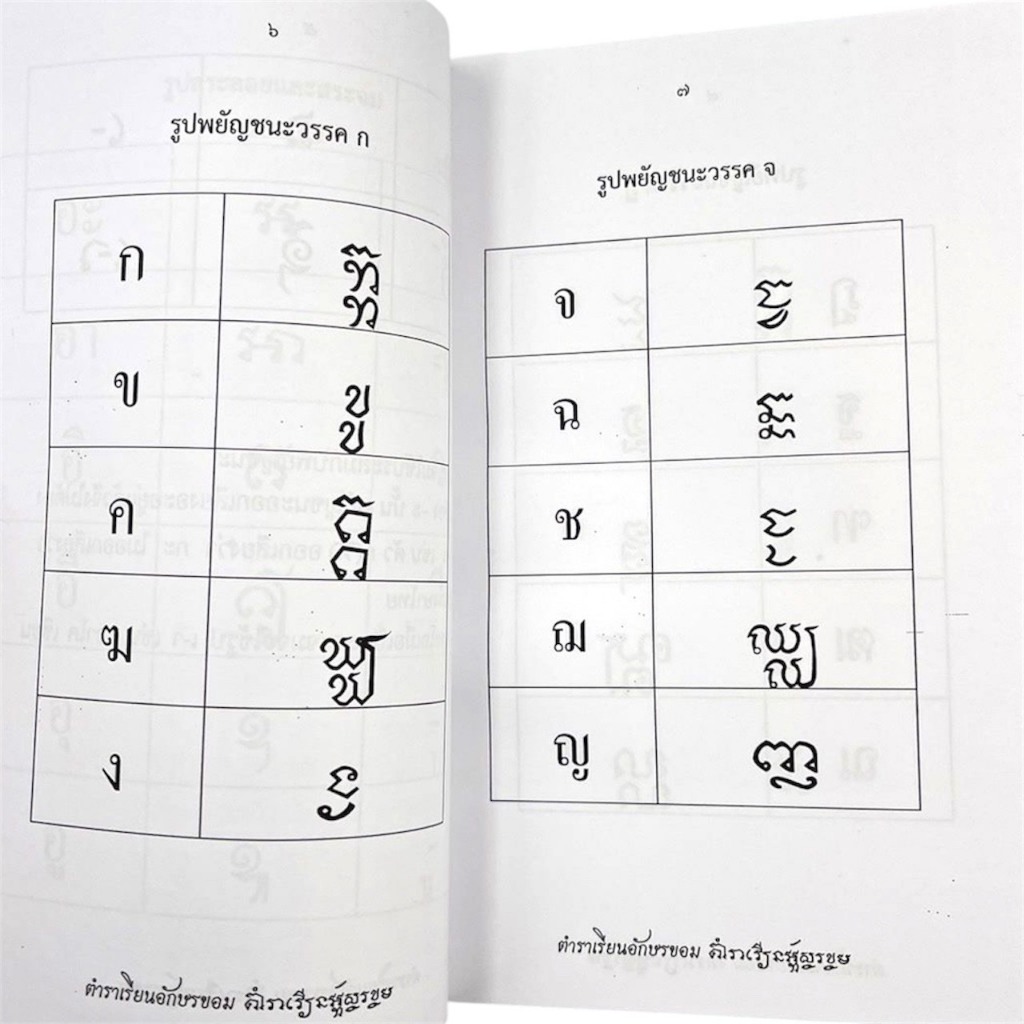 ๖
รูปพยัญชนะวรรค ก
ก ក្ក
ข ខ្ខ
ค គ្គ
ฆ ឃ្ឃ
ง ង្ង
ตำราเรียนอักษรขอม
๗
รูปพยัญชนะวรรค จ
จ ច្ច
ฉ ឆ្ឆ
ช ជ្ជ
ฌ ឈ្ឈ
ญ ញ្ញ
ตำราเรียนอักษรขอม